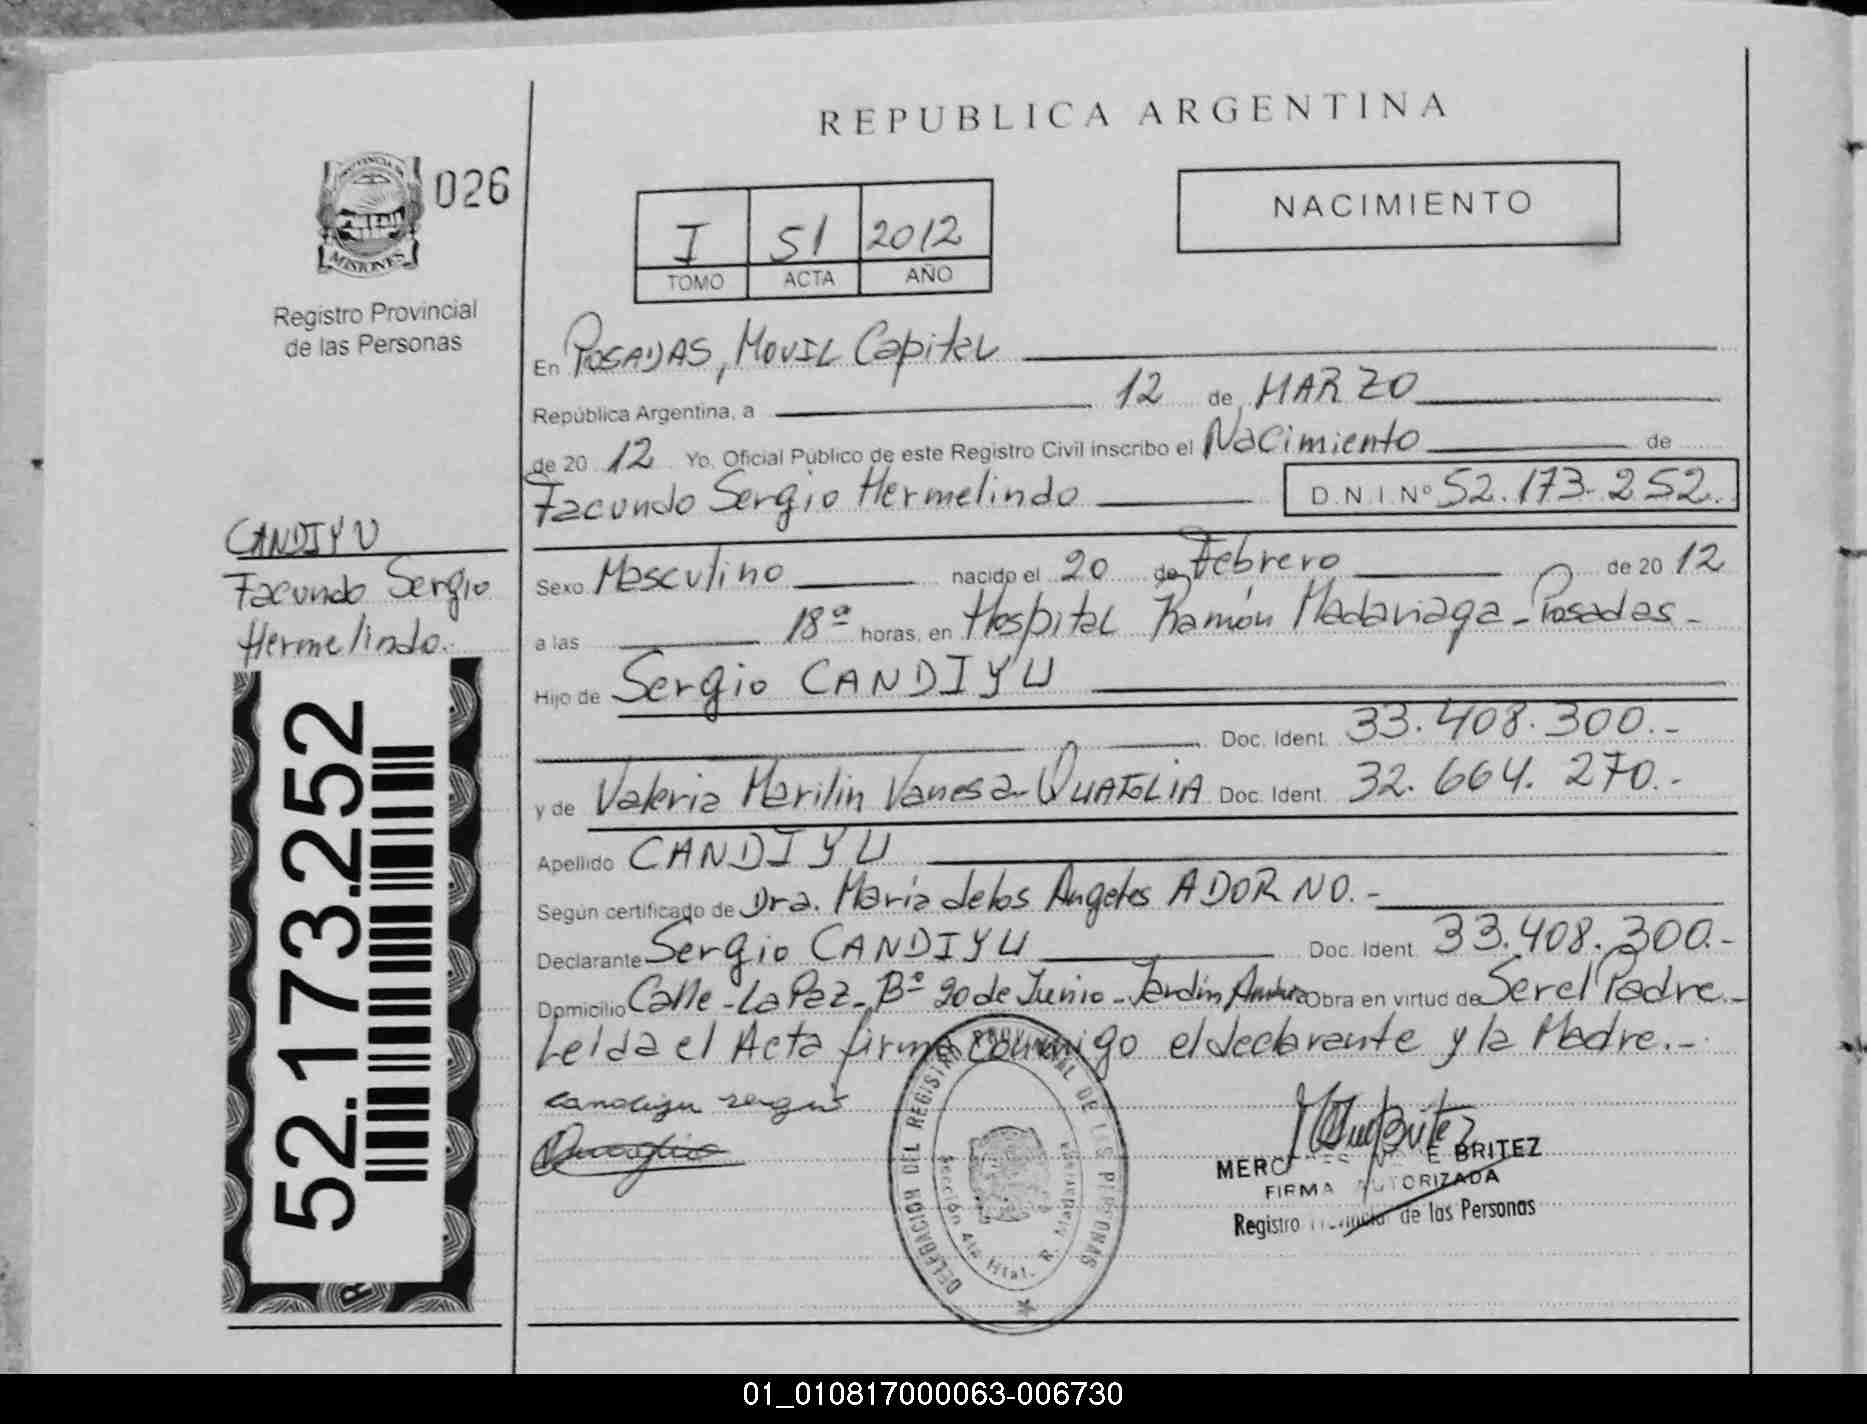 REPUBLICA ARGENTINA
PROVINCIA DE
MISIONES
026
Registro Provincial
de las Personas
I 51 2012
TOMO ACTA AÑO
NACIMIENTO
En POSADAS, MOVIL Capital
República Argentina, a 12 de MARZO
de 20 12 Yo, Oficial Público de este Registro Civil inscribo el Nacimiento de
Facundo Sergio Hermelindo D.N.I.Nº 52.173.252.
CANDIYU
Facundo Sergio
Hermelindo.
Sexo Masculino nacido el 20 de Febrero de 20 12
a las 18ª horas, en Hospital Ramón Madariaga - Posadas -
Hijo de Sergio CANDIYU
Doc. Ident. 33.408.300.-
y de Valeria Marilin Vanesa - QUAGLIA Doc. Ident. 32.664.270.-
Apellido CANDIYU
Según certificado de Dra. María de los Angeles ADORNO.-
Declarante Sergio CANDIYU Doc. Ident. 33.408.300.-
Domicilio Calle - La Paz - Bº 20 de Junio - Jardín América Obra en virtud de Ser el Padre -
Leída el Acta firma conmigo el declarante y la Madre.-
candiyu sergio
Quaglia
52.173.252
DELEGACION DEL REGISTRO PROVINCIAL DE LAS PERSONAS
Sección 4ta Htal. R. Madariaga
BRITEZ
FIRMA AUTORIZADA
Registro Provincial de las Personas
01_010817000063-006730